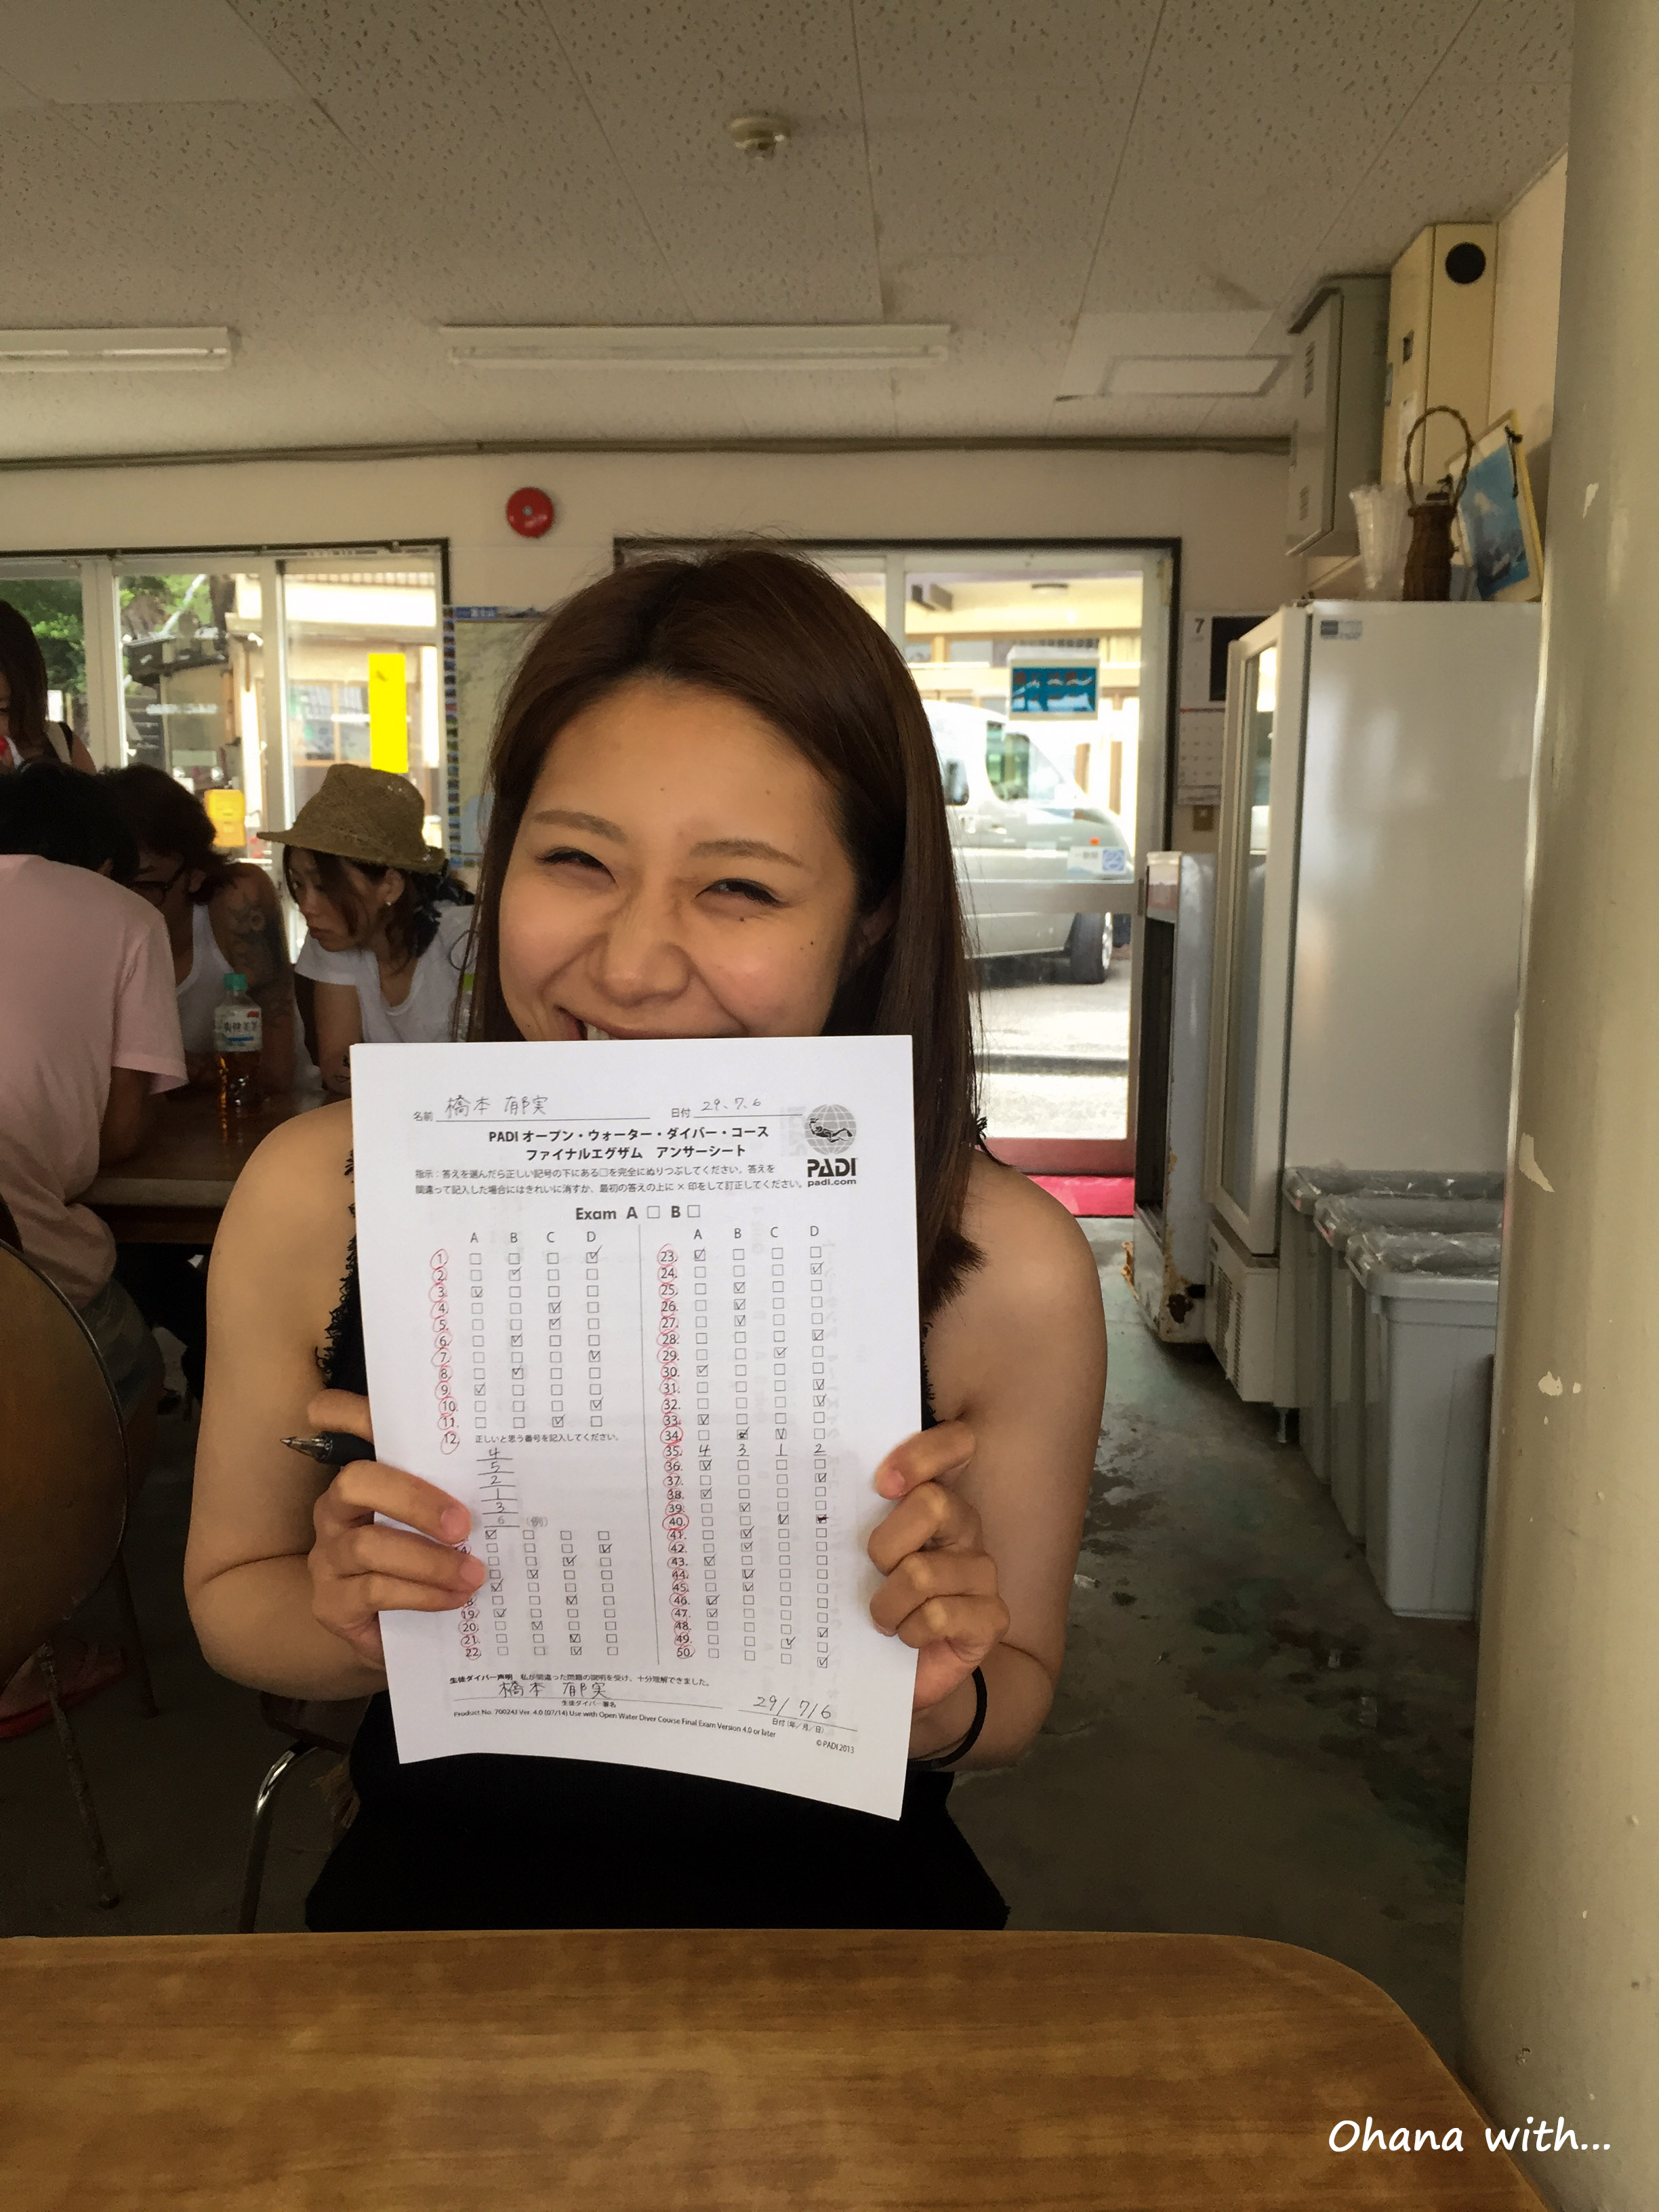 7
爽健美茶
名前 橋本 郁実 日付 29.7.6
PADI オープン・ウォーター・ダイバー・コース
ファイナルエグザム アンサーシート
PADI
padi.com
指示：答えを選んだら正しい記号の下にある□を完全にぬりつぶしてください。答えを
間違って記入した場合にはきれいに消すか、最初の答えの上に × 印をして訂正してください。
Exam A □ B □
A B C D
1.
2.
3.
4.
5.
6.
7.
8.
9.
10.
11.
12. 正しいと思う番号を記入してください。
4
5
2
1
3
6 (例)
19.
20.
21.
22.
A B C D
23.
24.
25.
26.
27.
28.
29.
30.
31.
32.
33.
34.
35. 4 3 1 2
36.
37.
38.
39.
40.
41.
42.
43.
44.
45.
46.
47.
48.
49.
50.
生徒ダイバー声明 私が間違った問題の説明を受け、十分理解できました。
橋本 郁実 29/7/6
生徒ダイバー署名 日付（年／月／日）
Product No. 70024J Ver. 4.0 (07/14) Use with Open Water Diver Course Final Exam Version 4.0 or later
© PADI 2013
Ohana with...